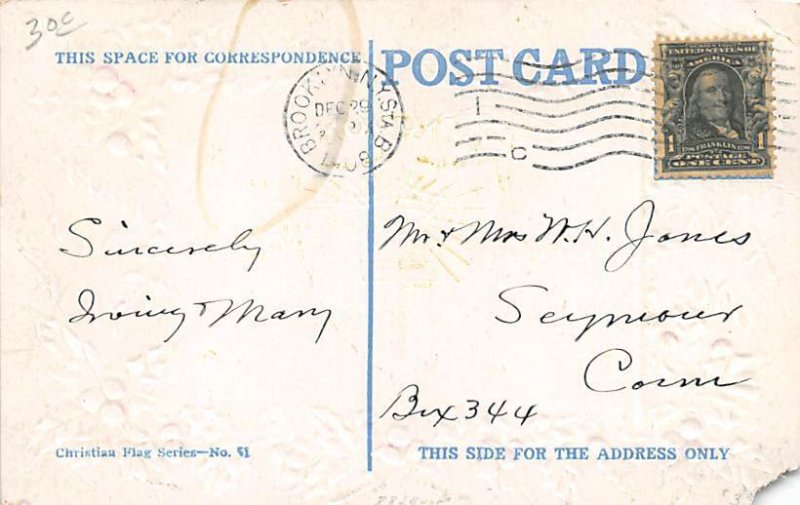 30c
THIS SPACE FOR CORRESPONDENCE
POST CARD
BROOKLYN, N.Y. STA. B
DEC 29
1908
1
C
SERIES 1902
UNITED STATES OF
AMERICA
1 FRANKLIN 1
POSTAGE
ONE CENT
Sincerely
Irving & Mary
Mr. & Mrs W. H. Jones
Seymour
Conn
Box 344
Christian Flag Series—No. 51
THIS SIDE FOR THE ADDRESS ONLY